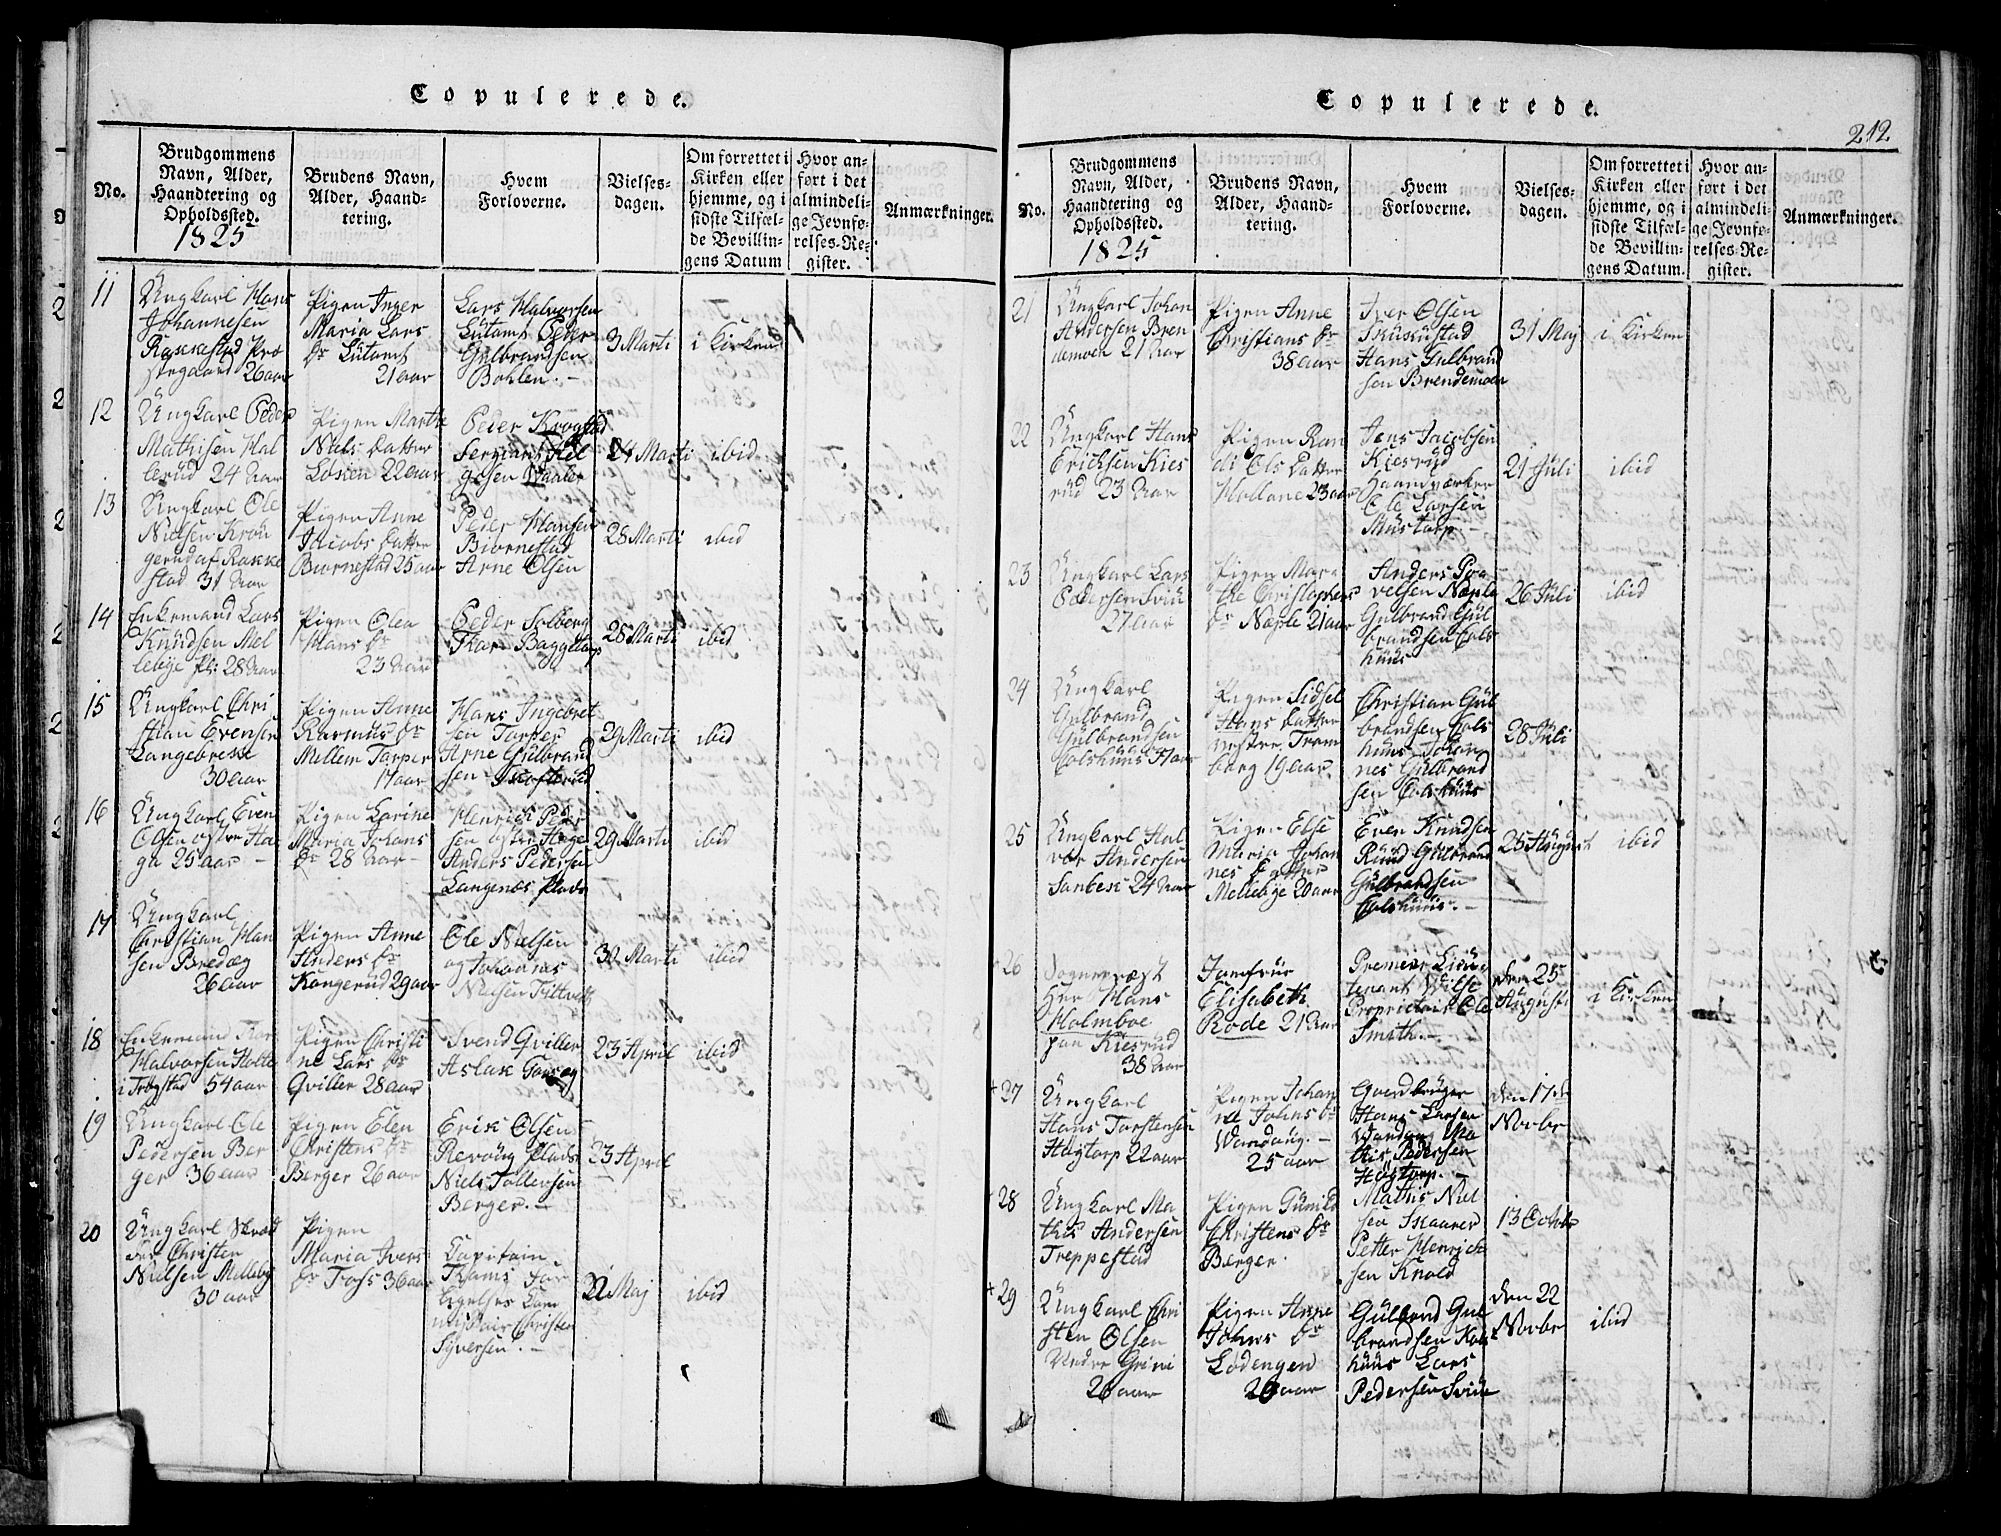 Copulerede.
No.
Brudgommens
Navn, Alder,
Haandtering og
Opholdssted.
1825
Brudens Navn,
Alder, Haand-
tering.
Hvem
Forloverne.
Vielses-
dagen.
Om forrettet i
Kirken eller
hjemme, og i
sidste Tilfæl-
de Bevillin-
gens Datum
Hvor an-
ført i det
almindeli-
ge Jevnfø-
relses-Re-
gister.
Anmærkninger.
11
Ungkarl Hans
Johannesen
Rakkestad Præ
stegaard 26 aar
Pigen Inger
Maria Lars
Dr Lutamt
21 aar
Lars Halvorsen
Lutamt Peder
Gulbrandsen
Bohlen. -
3 Marti
i Kirken
12
Ungkarl Peder
Mathisen Hal
lerud 24 Aar
Pigen Marthe
Niels Datter
Løken 22 aar
Peder Krogstad
Sergiant Hel
gesen Waaler
24 Marti
ibid
13
Ungkarl Ole
Nielsen Krou
gerud af Rakke
stad 31 Aar
Pigen Anne
Jacobs Datter
Biørnestad 25 aar
Peder Hansen
Biørnestad
Arne Olsen
28 Marti
ibid
14
Enkemand Lars
Knudsen Mel
lebye Pl: 28 Aar
Pigen Olea
Hans Dr
23 Aar
Peder Solberg
Thor Baggetorp
28 Marti
ibid
15
Ungkarl Chri
stian Evensen
Langebrekke
30 aar
Pigen Anne
Rasmus Dr
Mellem Torper
17 aar
Hans Ingebret
sen Torper
Arne Gulbrand
sen Skofterud
29 Marti
ibid
16
Ungkarl Even
Olsen østre Ha
ga 25 aar -
Pigen Karine
Maria Johans
Dr 28 Aar -
Henrich Peder
sen østre Hage
Anders Pedersen
Langenæs Plads
29 Marti
ibid
17
Ungkarl
Christian Han
sen Bredæg
26 aar
Pigen Anne
Anders Dr
Kongerud 29 aar
Ole Nielsen
og Johannes
Nielsen Tittvedt
30 Marti
ibid
18
Enkemand Tor
Halvorsen Holte
i Trøgstad 54 aar
Pigen Christi
ne Lars Dr
Qviller 28 aar
Svend Qviller
Aslak
23 April
ibid
19
Ungkarl Ole
Pedersen Ber
ger 36 aar
Pigen Elen
Christens Dr
Berger 26 aar
Erik Olsen
Revoug Plads
Niels Tollersen
Berger. -
23 April
20
Ungkarl Skræd
der Christen
Nielsen Melleby
30 aar
Pigen
Maria Ivers
Dr Foss 36 aar
Capitain
Thams For
ligelses Com
missair Christen
Syversen. -
22 Maj
ibid
Copulerede.
212
No.
Brudgommens
Navn, Alder,
Haandtering og
Opholdssted.
1825
Brudens Navn,
Alder, Haand-
tering.
Hvem
Forloverne.
Vielses-
dagen.
Om forrettet i
Kirken eller
hjemme, og i
sidste Tilfæl-
de Bevillin-
gens Datum.
Hvor an-
ført i det
almindeli-
ge Jevnfø-
relses-Re-
gister.
Anmærkninger.
21
Ungkarl Johan
Andersen Bren
demoen 21 Aar
Pigen Anne
Christians Dr
38 aar
Iver Olsen
Skukustad
Hans Gulbrand
sen Brendemoen
31 Maj
i Kirken
22
Ungkarl Hans
Erichsen Kies
rud 23 Aar
Pigen Ran
di Ols Datter
Hollane 23 aar
Jens Jacobsen
Kiesrud
Haandværker
Ole Larsen
Mustorp -
21 Juli
ibid
23
Ungkarl Lars
Pedersen Sviu
27 aar
Pigen Mar
the Christophers
Dr Næple 21 aar
Anders Po
velsen Næple
Gulbrand Gul
brandsen Cols
huus
26 Juli
ibid
24
Ungkarl
Gulbrand
Gulbrandsen
Colshuus Aar
Pigen Sidsel
Hans Datter
vestre Trom
borg 19 aar.
Christian Gul
brandsen Cols
huus Johan
nes Gulbrand
sen Colshuus
28 Juli
25
Ungkarl Hal
vor Andersen
Sanbek 24 Aar
Pigen Else
Maria Johan
nes Datter
Mellebye 20 aar
Even Knudsen
Ruud Gulbrand
Gulbrandsen
Colshuus. -
25 August
ibid
26
Sognepræst
Her Hans
Holmboe
paa Kiesrud
38 Aar
Jomfrue
Elisabeth
Rode 21 Aar
Premeer Lieu
tenant Wilse
Proprietair Ole
Smith. -
den 25
August
i Kirken
+ 27
Ungkarl
Hans Torstensen
Høgtorp 22 aar
Pigen Johan
ne Johns Dr
Wandaug. -
25 aar
Gaardbruger
Hans Larsen
Wandaug Ma
this Pedersen
Høgtorp. -
den 17de
Novbr
28
Ungkarl Ma
this Andersen
Treppestad
Pigen Gunild
Christens Dr
Berger.
Mathis Niel
sen Skaarer
Petter Henrich
sen Knold
13 Octobr
+ 29
Ungkarl Chri
sten Olsen
Nedre Grini
26 aar
Pigen Anne
Johns Dr
Lødengen
20 aar
Gulbrand Gul
brandsen Kols
huus Lars
Pedersen Sviu
den 22
Novbr
ibid